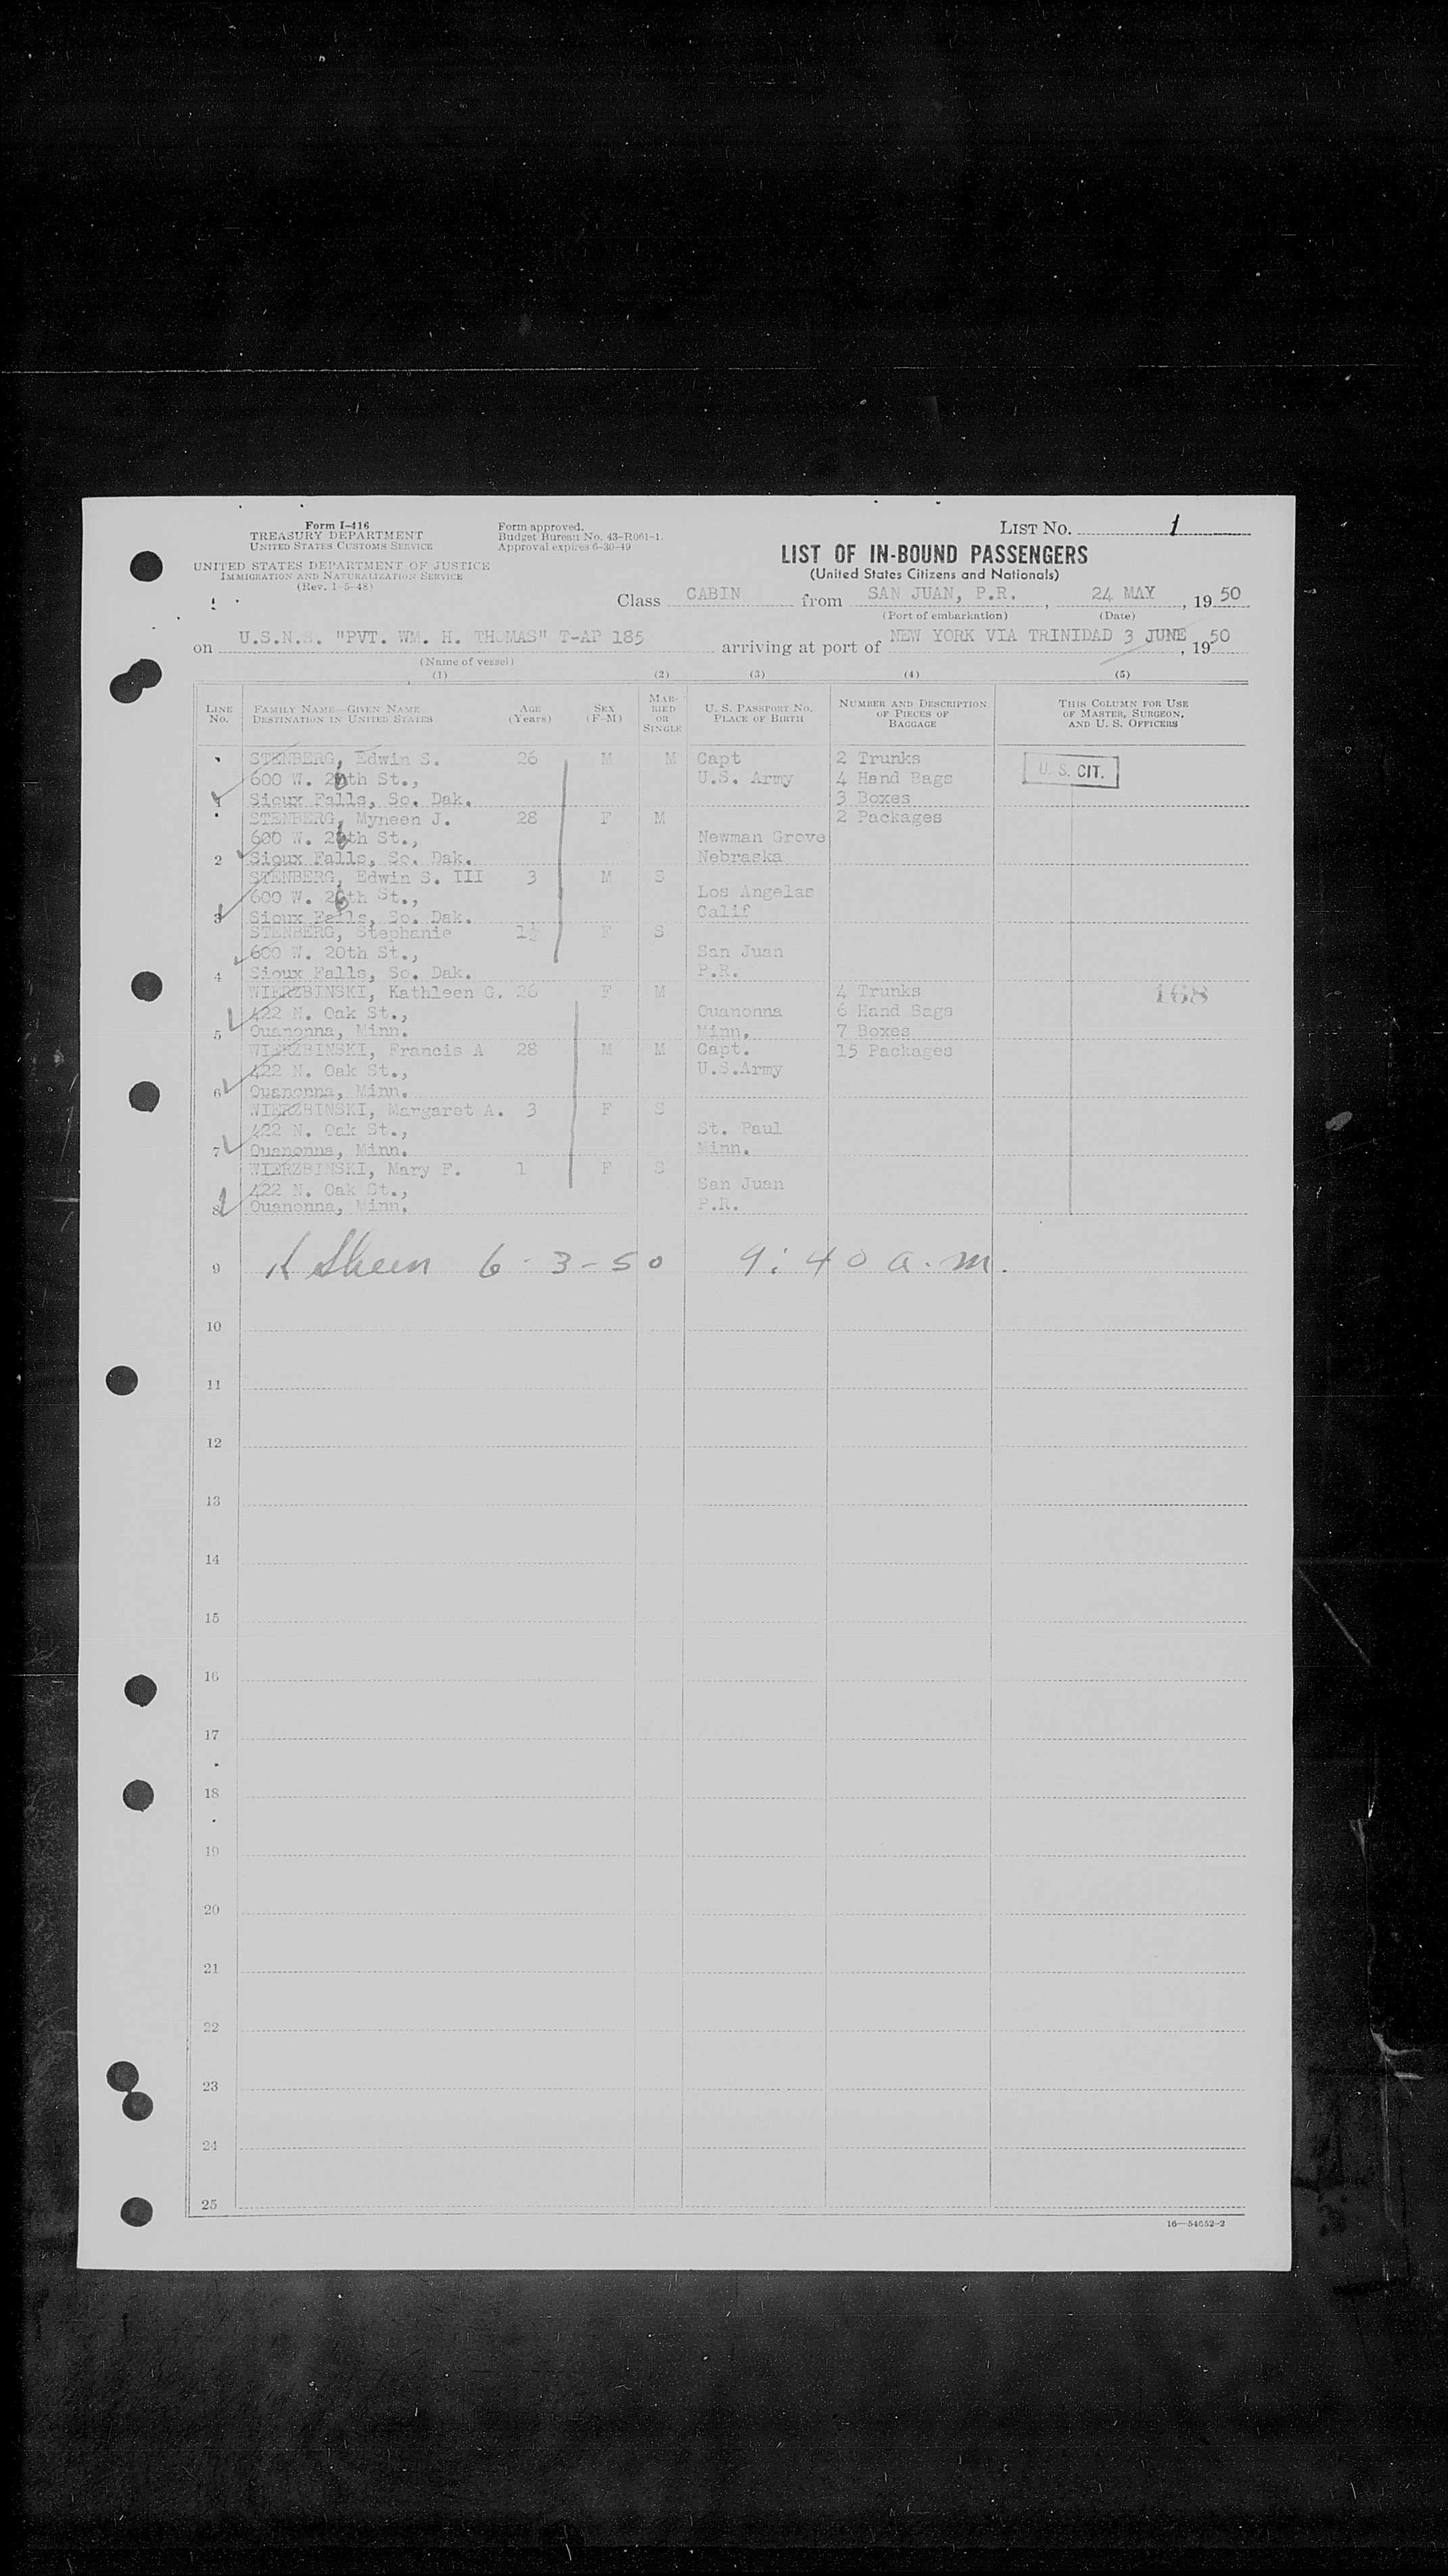 Form I-416
TREASURY DEPARTMENT
UNITED STATES CUSTOMS SERVICE
UNITED STATES DEPARTMENT OF JUSTICE
IMMIGRATION AND NATURALIZATION SERVICE
(Rev. 1-5-48)
Form approved.
Budget Bureau No. 43-R061-1.
Approval expires 6-30-49
LIST No. 1
LIST OF IN-BOUND PASSENGERS
(United States Citizens and Nationals)
Class CABIN from SAN JUAN, P.R., 24 MAY, 19 50
(Port of embarkation) (Date)
on U.S.N.S. "PVT. WM. H. THOMAS" T-AP 185 arriving at port of NEW YORK VIA TRINIDAD 3 JUNE, 19 50
(Name of vessel)
(1) (2) (3) (4) (5)
LINE No. FAMILY NAME—GIVEN NAME DESTINATION IN UNITED STATES AGE (Years) SEX (F-M) MARRIED OR SINGLE U. S. PASSPORT No. PLACE OF BIRTH NUMBER AND DESCRIPTION OF PIECES OF BAGGAGE THIS COLUMN FOR USE OF MASTER, SURGEON, AND U. S. OFFICERS
STENBERG, Edwin S. 26 M M Capt 2 Trunks
600 W. 26th St., U.S. Army 4 Hand Bags U. S. CIT.
1 Sioux Falls, So. Dak. 3 Boxes
STENBERG, Myneen J. 28 F M 2 Packages
600 W. 26th St., Newman Grove
2 Sioux Falls, So. Dak. Nebraska
STENBERG, Edwin S. III 3 M S
600 W. 26th St., Los Angelas
3 Sioux Falls, So. Dak. Calif
STENBERG, Stephanie 1½ F S
600 W. 20th St., San Juan
4 Sioux Falls, So. Dak. P.R.
WIERZBINSKI, Kathleen G. 26 F M 4 Trunks 168
422 N. Oak St., Ouanonna 6 Hand Bags
5 Ouanonna, Minn. Minn. 7 Boxes
WIERZBINSKI, Francis A 28 M M Capt. 15 Packages
422 N. Oak St., U.S.Army
6 Ouanonna, Minn.
WIERZBINSKI, Margaret A. 3 F S
422 N. Oak St., St. Paul
7 Ouanonna, Minn. Minn.
WIERZBINSKI, Mary F. 1 F S
422 N. Oak St., San Juan
8 Ouanonna, Minn. P.R.
9 6-3-50 9:40 a.m.
10
11
12
13
14
15
16
17
18
19
20
21
22
23
24
25
16—54652-2